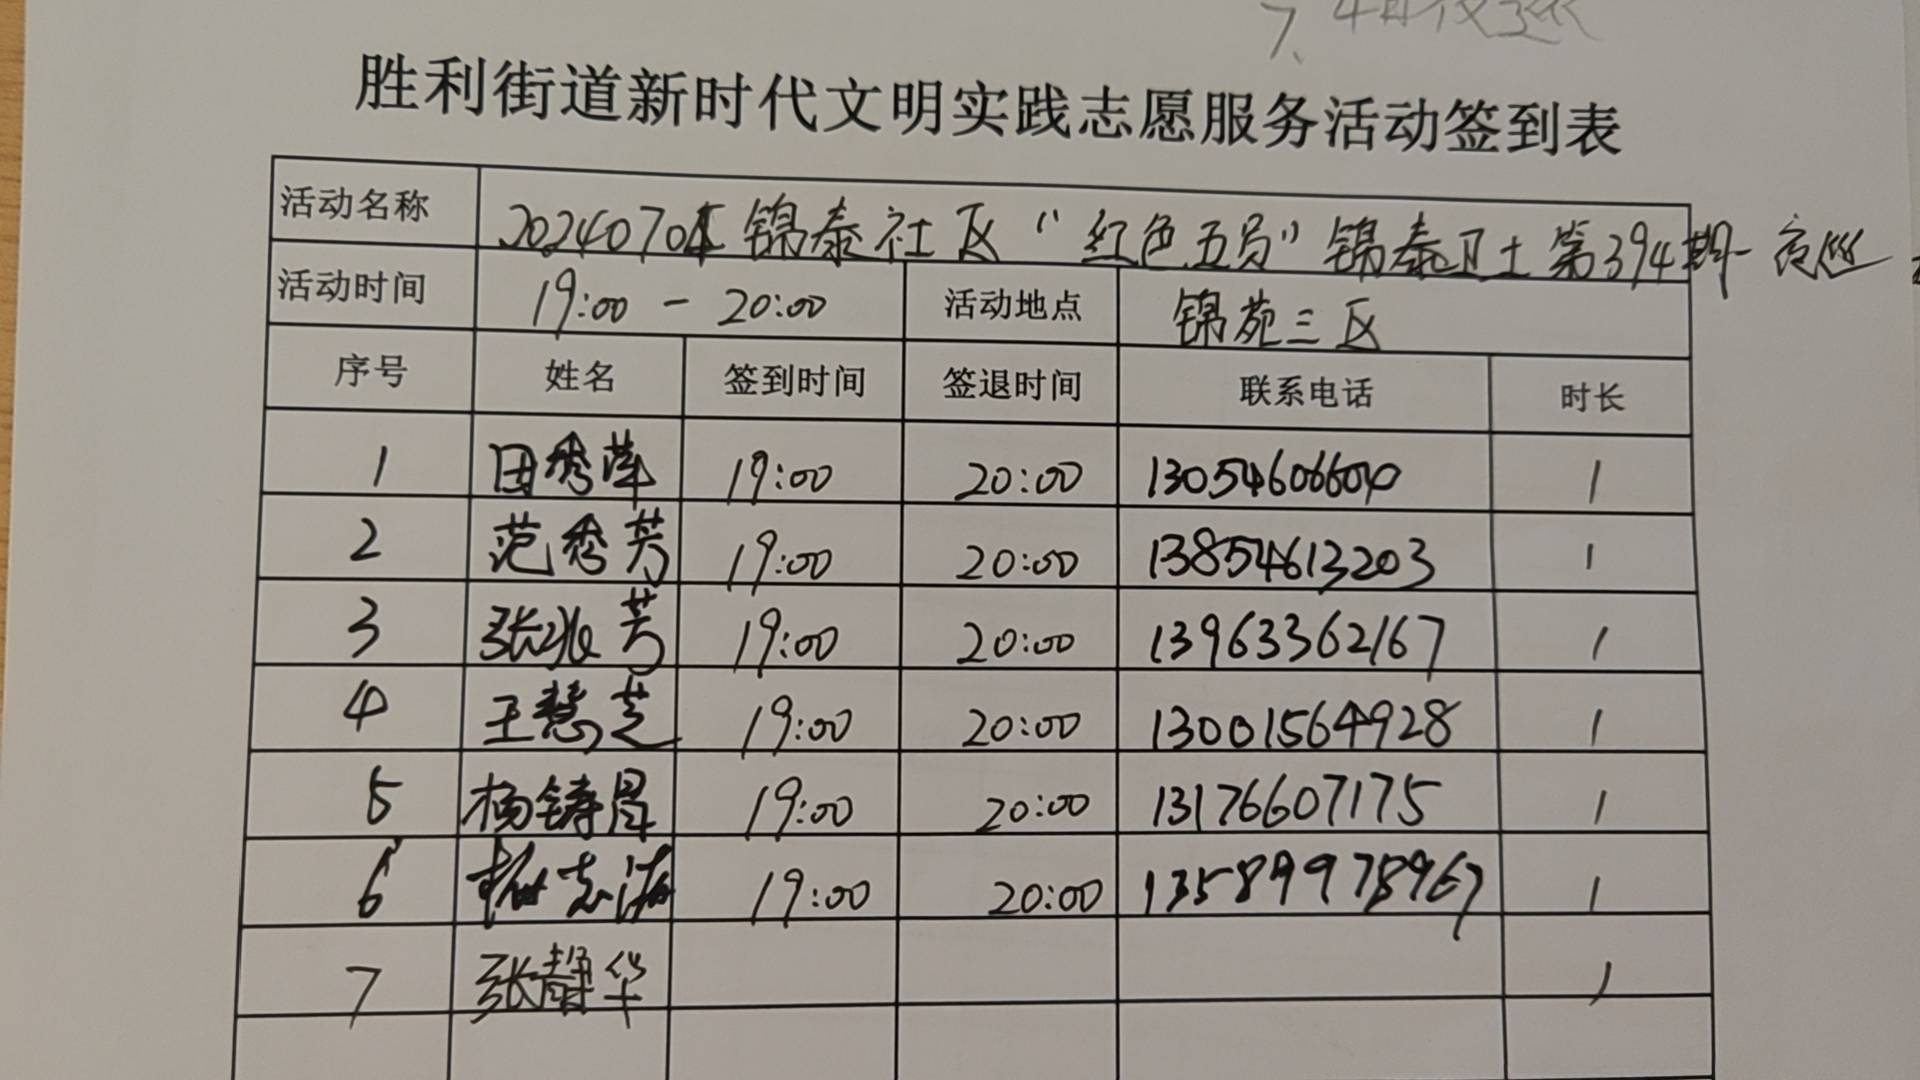 胜利街道新时代文明实践志愿服务活动签到表
活动名称 2024070 锦泰社区“红色五员”锦泰卫士第394期-夜巡
活动时间 19:00-20:00 活动地点 锦苑三区
序号 姓名 签到时间 签退时间 联系电话 时长
1 田秀萍 19:00 20:00 13054606604 1
2 范秀芳 19:00 20:00 13854613203 1
3 张兆芳 19:00 20:00 13963362167 1
4 王慧芝 19:00 20:00 13001564928 1
5 杨铸昌 19:00 20:00 13176607175 1
6 志 19:00 20:00 13589978967 1
7 张静华 1